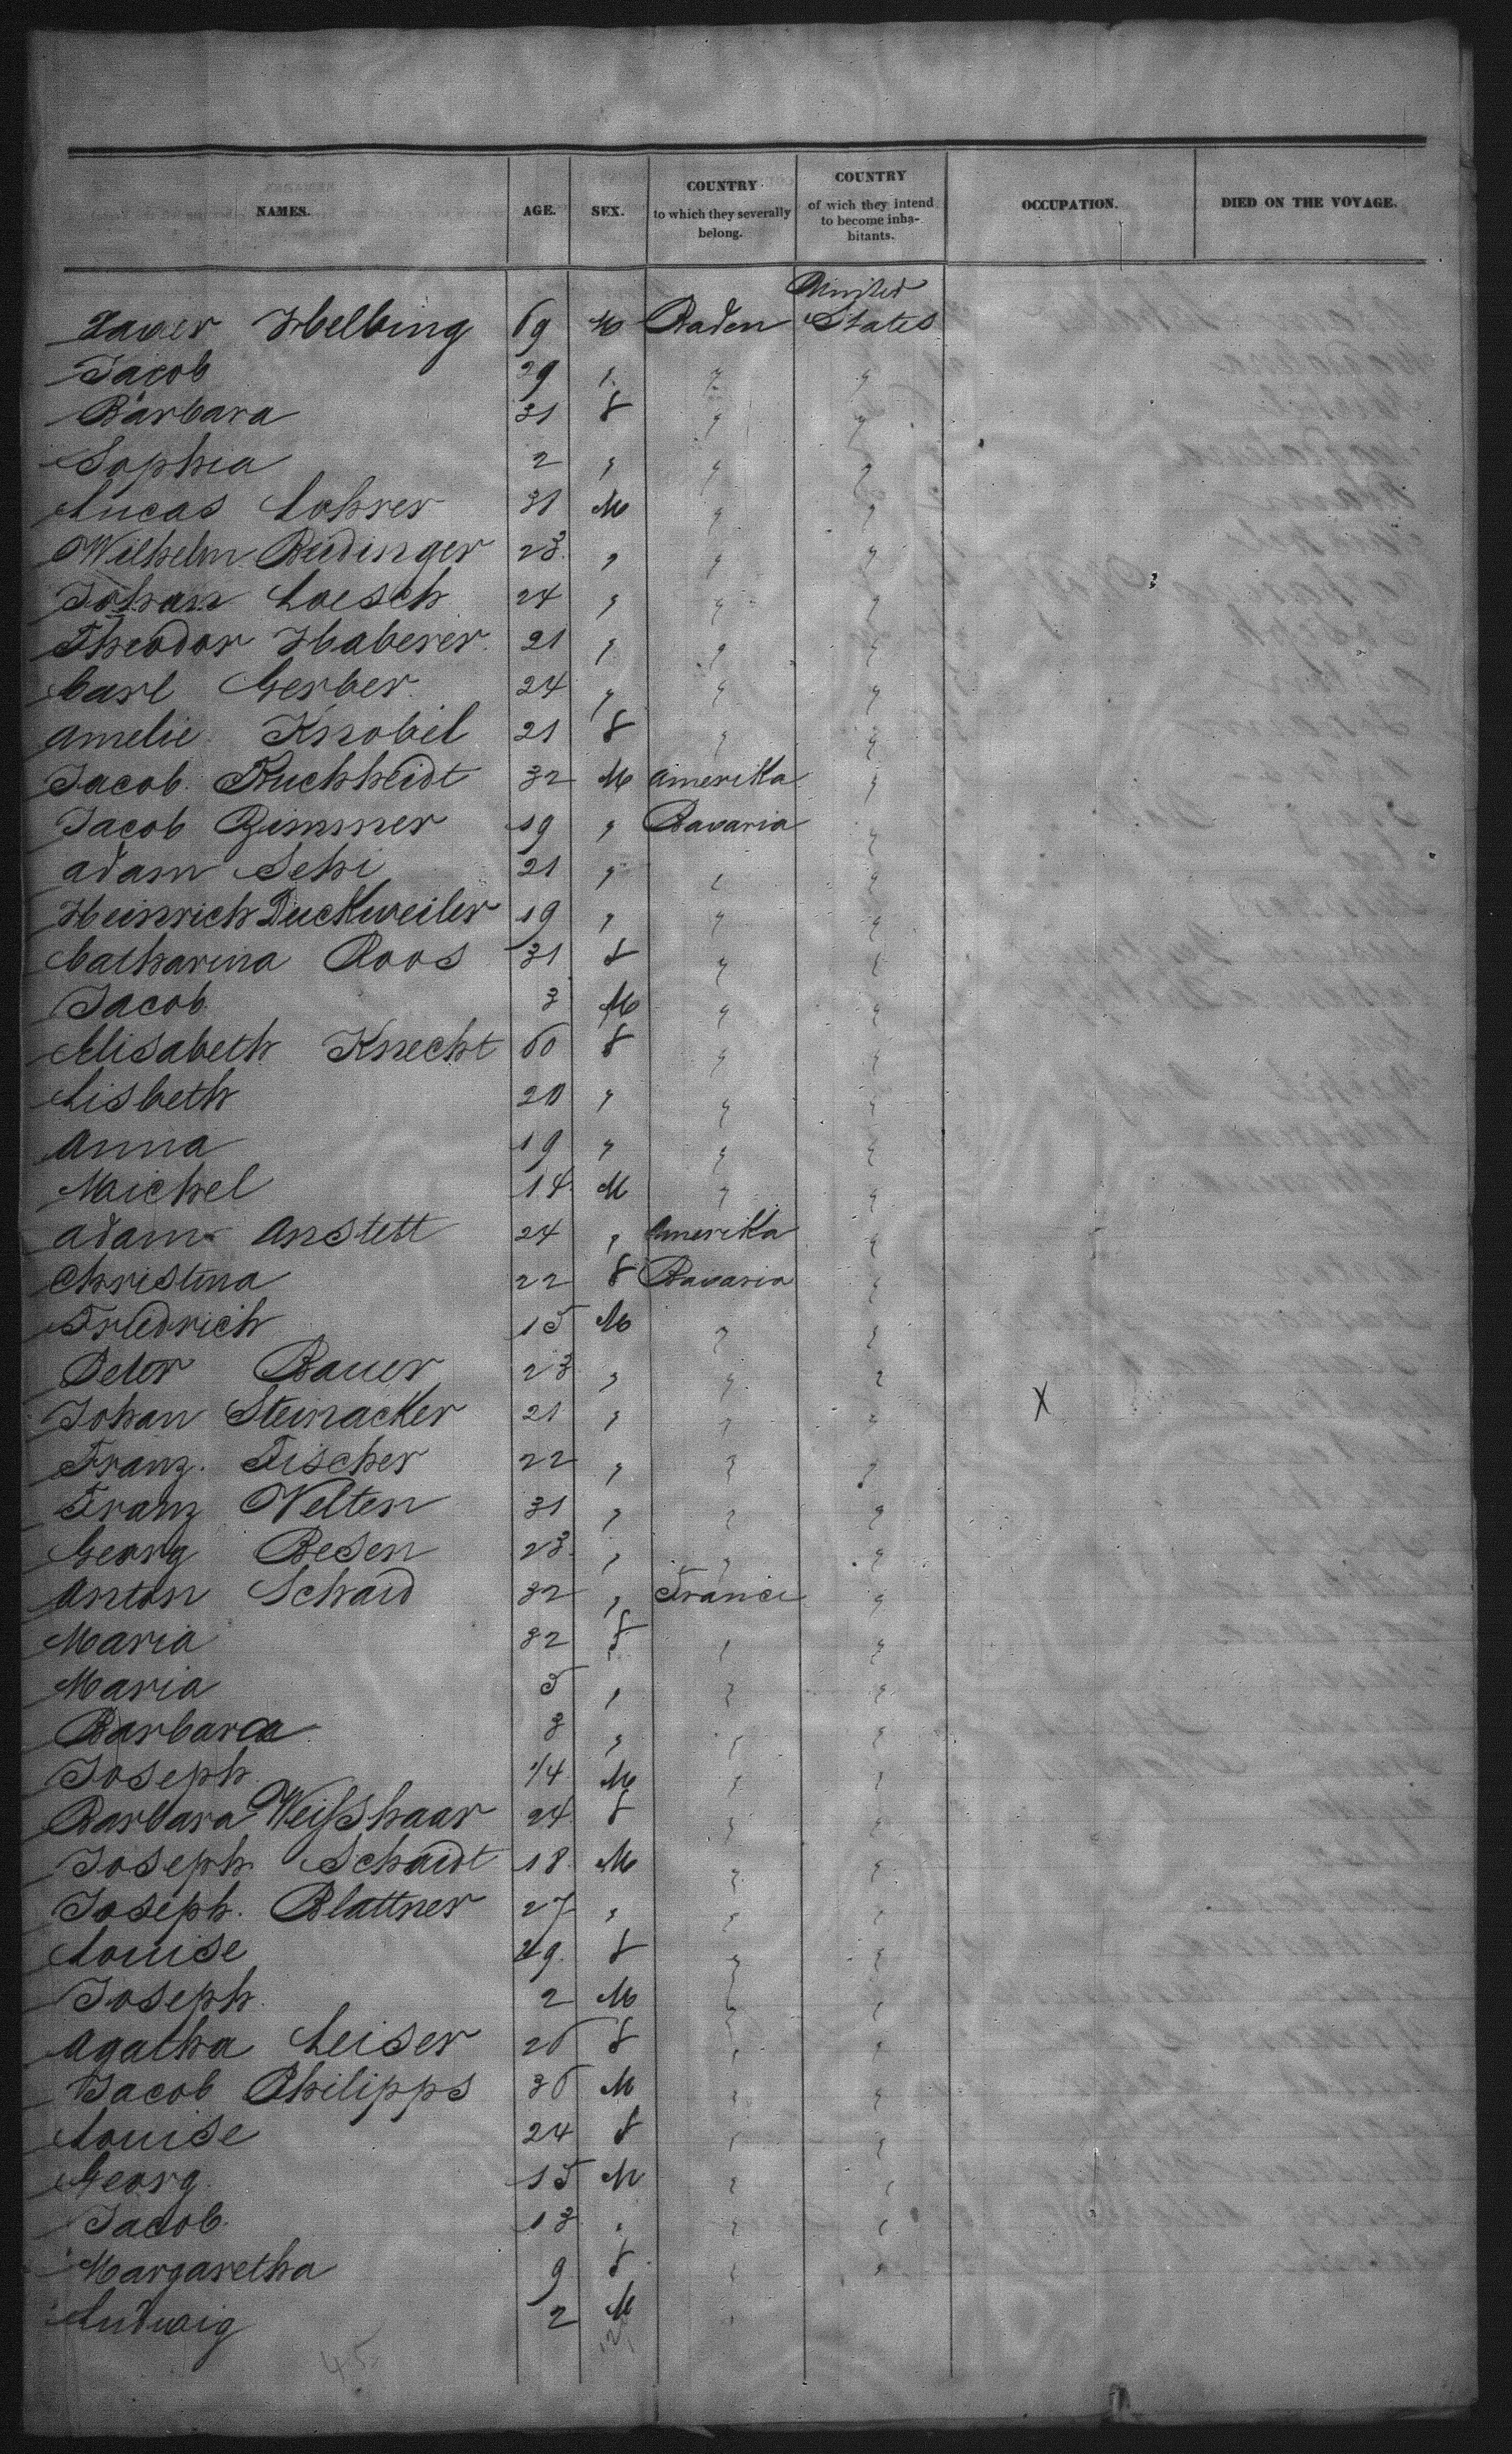 NAMES. AGE. SEX. COUNTRY to which they severally belong. COUNTRY of wich they intend to become inhabitants. OCCUPATION. DIED ON THE VOYAGE.
United
Xaver Helbing 69 M Baden States
Jacob 29 " " "
Barbara 31 f " "
Sophia 2 " " "
Lucas Lohrer 31 M " "
Wilhelm Budinger 23 " " "
Johan Loesch 24 " " "
Theodor Haberer 21 " " "
Carl Gerber 24 " " "
Amelie Knobel 21 f " "
Jacob Buchheidt 32 M Amerika "
Jacob Zimmer 19 " Bavaria "
Adam Sehi 21 " " "
Heinrich Duckweiler 19 " " "
Catharina Roos 31 f " "
Jacob 3 M " "
Elisabeth Knecht 60 f " "
Lisbeth 20 " " "
Anna 19 " " "
Michel 14 M " "
Adam Anstett 24 " Amerika "
Christina 22 f Bavaria "
Friedrich 15 M " "
Peter Bauer 23 " " "
Johan Steinacker 21 " " " X
Franz Fischer 22 " " "
Franz Velten 31 " " "
Georg Besen 23 " " "
Anton Schaid 32 " France "
Maria 32 f " "
Maria 5 " " "
Barbara 3 " " "
Joseph 1/4 M " "
Barbara Weisshaar 24 f " "
Joseph Schaidt 18 M " "
Joseph Blattner 27 " " "
Louise 29 f " "
Joseph 2 M " "
Agatha Leiser 26 f " "
Jacob Philipps 36 M " "
Louise 24 f " "
Georg 15 M " "
Jacob 13 " " "
Margaretha 9 f " "
Ludwig 2 M "
45